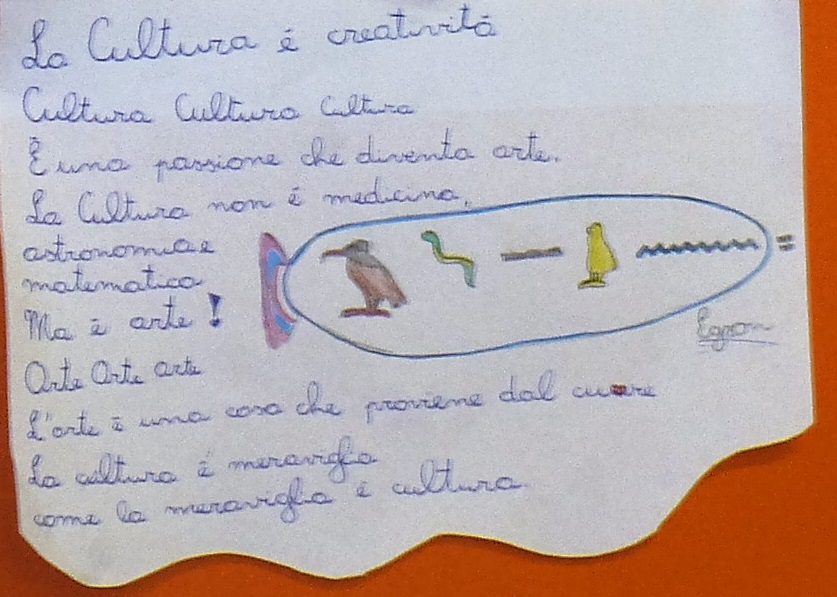 La Cultura é creatività
Cultura Cultura Cultura
È una passione che diventa arte.
La Cultura non é medicina,
astronomia e
matematica
Ma è arte!
Arte Arte arte
L'arte è una cosa che proviene dal cuore
La cultura é meraviglia
come la meraviglia é cultura